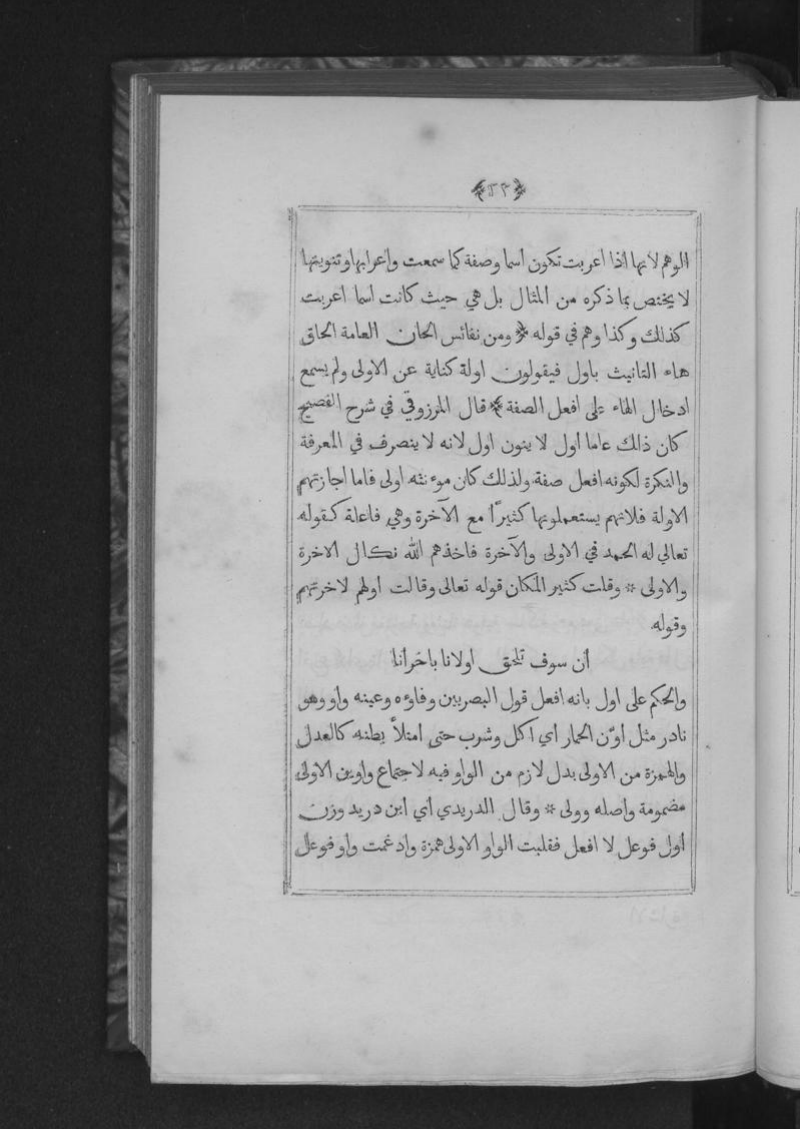 ﴿٤٢﴾
الوهم لانها اذا اعربت تكون اسما وصفة كما سمعت واعرابها وتنوينها
لا يختص بما ذكره من المثال بل هي حيث كانت اسما اعربت
كذلك وكذا وهم في قوله * ومن نفائس الحان العامة الحاق
هاء التانيث باول فيقولون اولة كناية عن الاولى ولم يسمع
ادخال الهاء على افعل الصفة * قال المرزوقي في شرح الفصيح
كان ذلك عاما أول لا ينون اول لانه لا ينصرف في المعرفة
والنكرة لكونه افعل صفة ولذلك كان موءنثه اولى فاما اجازتهم
الاولة فلانهم يستعملونها كثيرًا مع الآخرة وهي فاعلة كقوله
تعالي له الحمد في الاولى والآخرة فاخذهم الله نكال الاخرة
والاولى * وقلت كثير المكان قوله تعالى وقالت اولهم لاخرتهم
وقوله
ان سوف تلحق اولانا باخرانا
والحكم على اول بانه افعل قول البصريين وفاوءه وعينه واو وهو
نادر مثل اوّن الحمار أي أكل وشرب حتى امتلأ بطنه كالعدل
والهمزة من الاولى بدل لازم من الواو فيه لاجتماع واوين الاولى
مضمومة واصله وولى * وقال الدريدي أي ابن دريد وزن
أول فوعل لا افعل فقلبت الواو الاولى همزة وادغمت واو فوعل